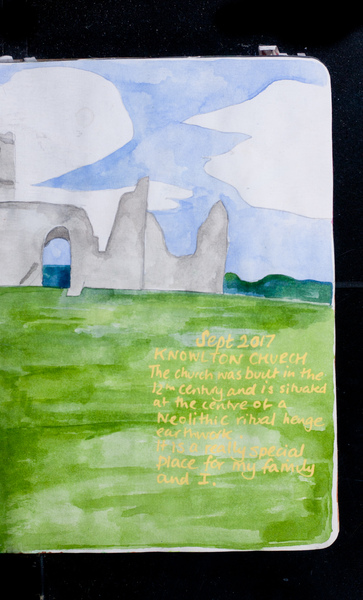 Sept 2017
KNOWLTON CHURCH
The church was built in the
12th century and is situated
at the centre of a
Neolithic ritual henge
earthwork.
It is a really special
place for my family
and I.